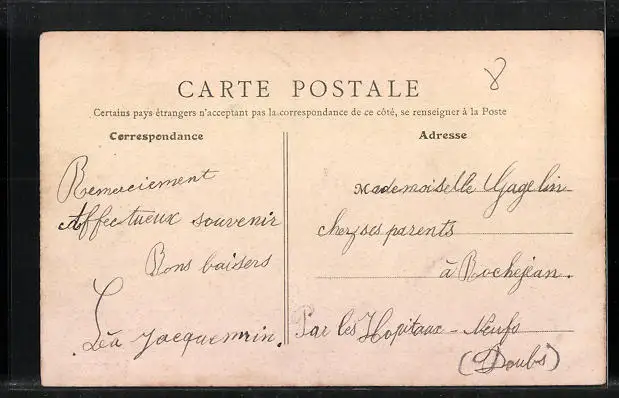 8
CARTE POSTALE
Certains pays étrangers n'acceptant pas la correspondance de ce côté, se renseigner à la Poste
Correspondance
Remerciement
Affectueux souvenir
Bons baisers
Léa Jacquemin.
Adresse
Mademoiselle Gagelin
chez ses parents
à Rochejean.
Par les Hopitaux-Neufs
(Doubs)